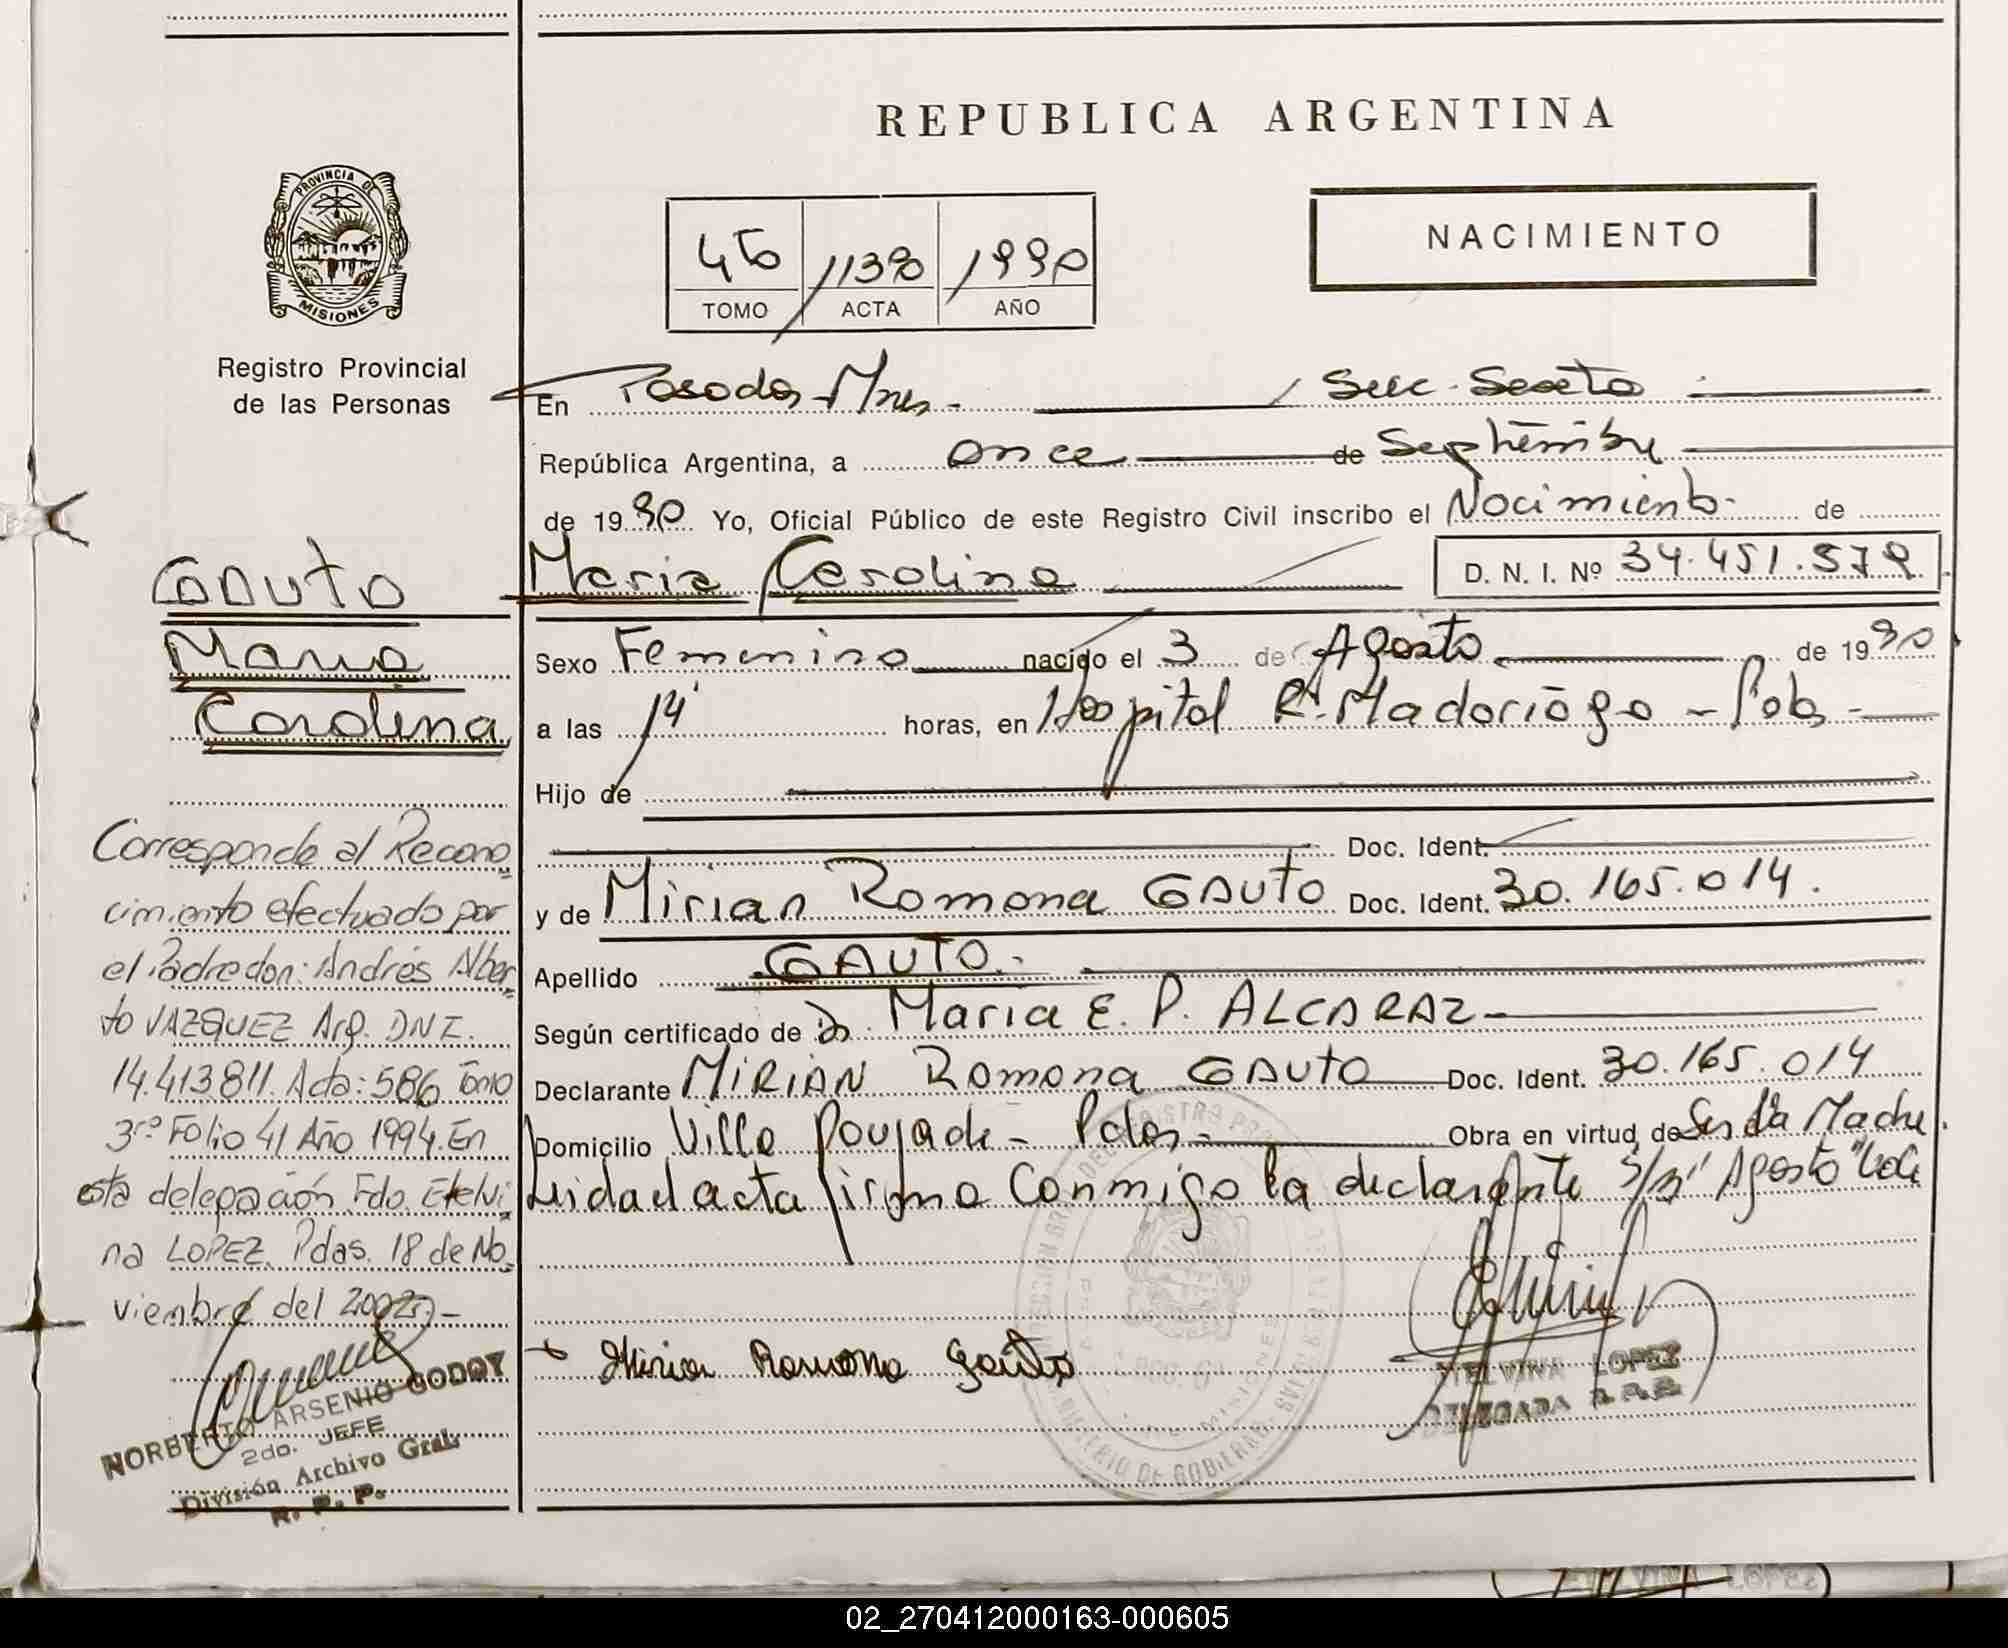 REPUBLICA ARGENTINA
NACIMIENTO
PROVINCIA DE
MISIONES
Registro Provincial
de las Personas
4to 1139 1990
TOMO ACTA AÑO
En Posadas Mnes. Secc. Sexta
República Argentina, a once de Septiembre
de 1990 Yo, Oficial Público de este Registro Civil inscribo el Nacimiento de
Maria Carolina D. N. I. Nº 34.451.579
Sexo Femenino nacido el 3 de Agosto de 1990
a las 14 horas, en Hospital R. Madariaga - Pdas -
Hijo de
Doc. Ident.
y de Mirian Ramona GAUTO Doc. Ident. 30.165.014.
Apellido GAUTO.-
Según certificado de Maria E. P. ALCARAZ-
Declarante MIRIAN Ramona GAUTO Doc. Ident. 30.165.014
Domicilio Villa Poujade - Pdas - Obra en virtud de Ser la Madre.
Leida el acta firma conmigo la declarante Agosto "Vale
Mirian Ramona Gauto
ETELVINA LOPEZ
DELEGADA R.P.P.
GAUTO
Maria
Carolina
Corresponde al Recono
cimiento efectuado por
el Padre don: Andrés Alber
to VAZQUEZ Arg. DNI.
14.413811. Acta: 586 Tomo
3ro Folio 41 Año 1994. En
esta delegación. Fdo. Etelvi
na LOPEZ. Pdas. 18 de No
viembre del 2002.-
NORBERTO ARSENIO GODOY
2do. JEFE
División Archivo Gral.
R. P. P.
02_270412000163-000605